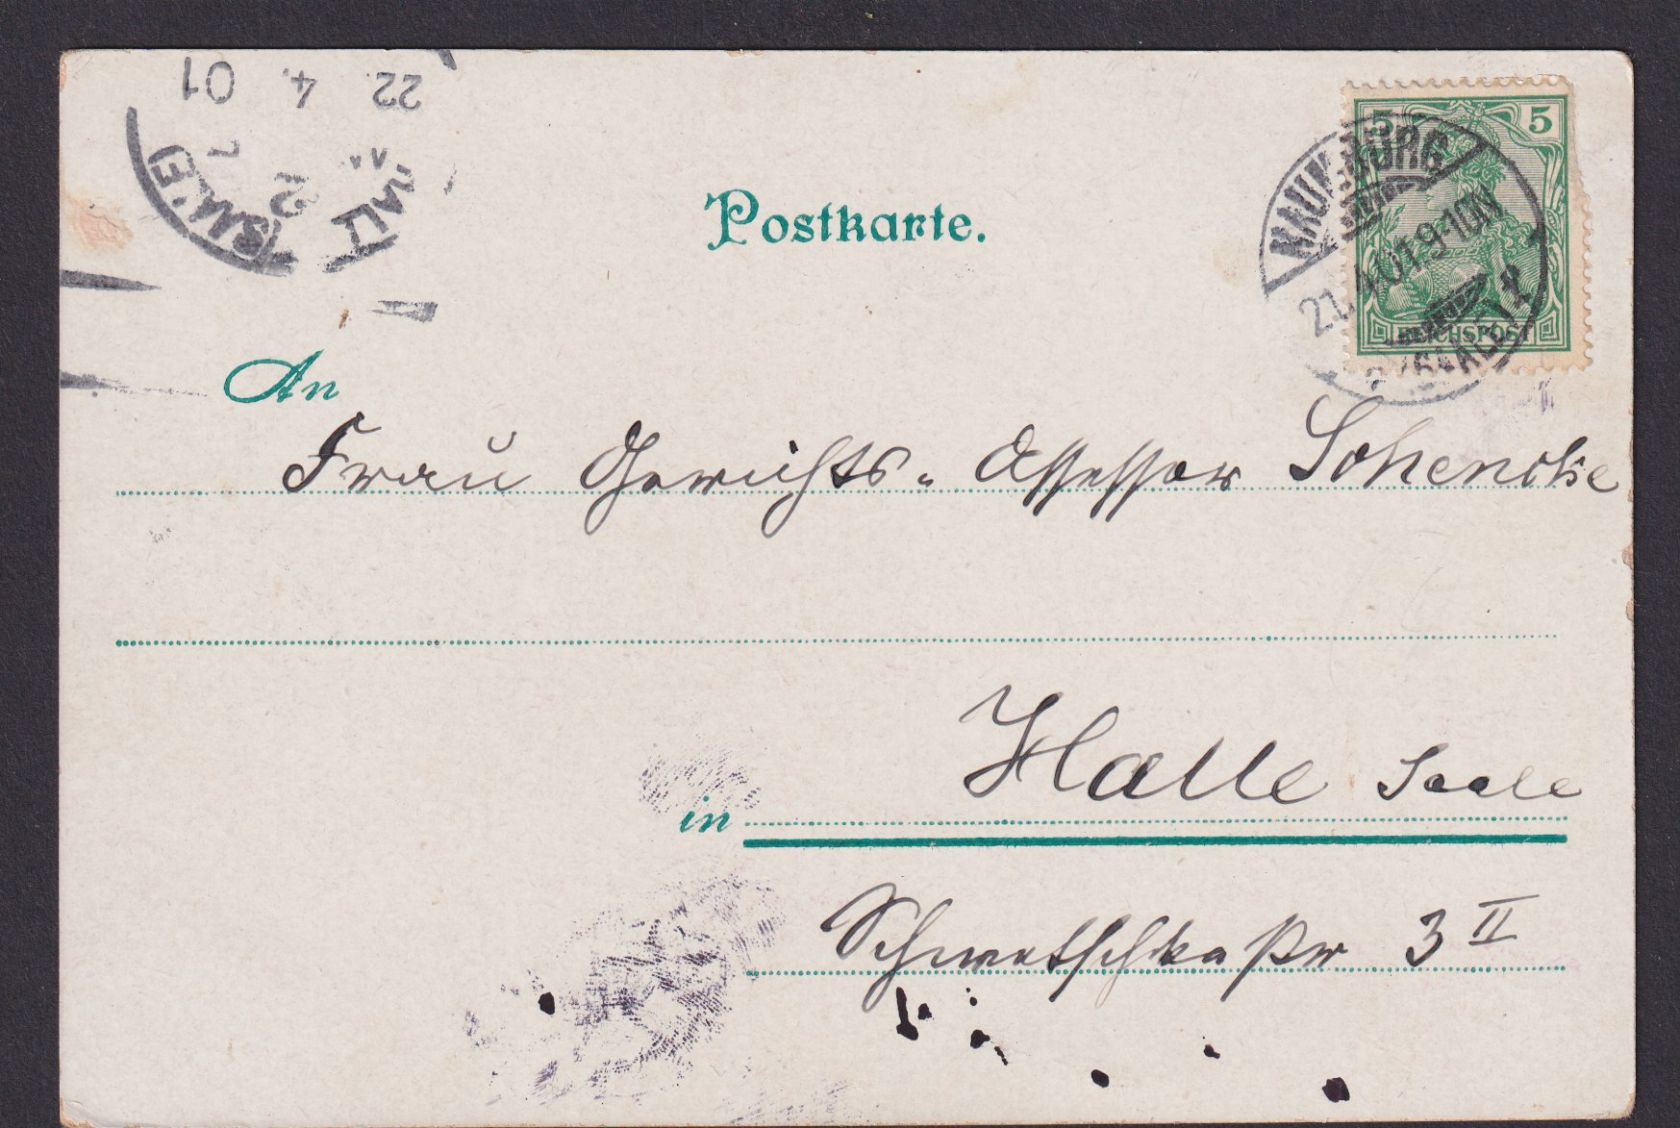 22. 4. 01
HALLE
(SAALE)
2
Postkarte.
5 5
NAUMBURG
21.4.01.9-10N
(SAALE) 1
REICHSPOST
An
Frau Gerichts-Assessor Schencke
Halle Saale
in
Schwetschkestr 3 II